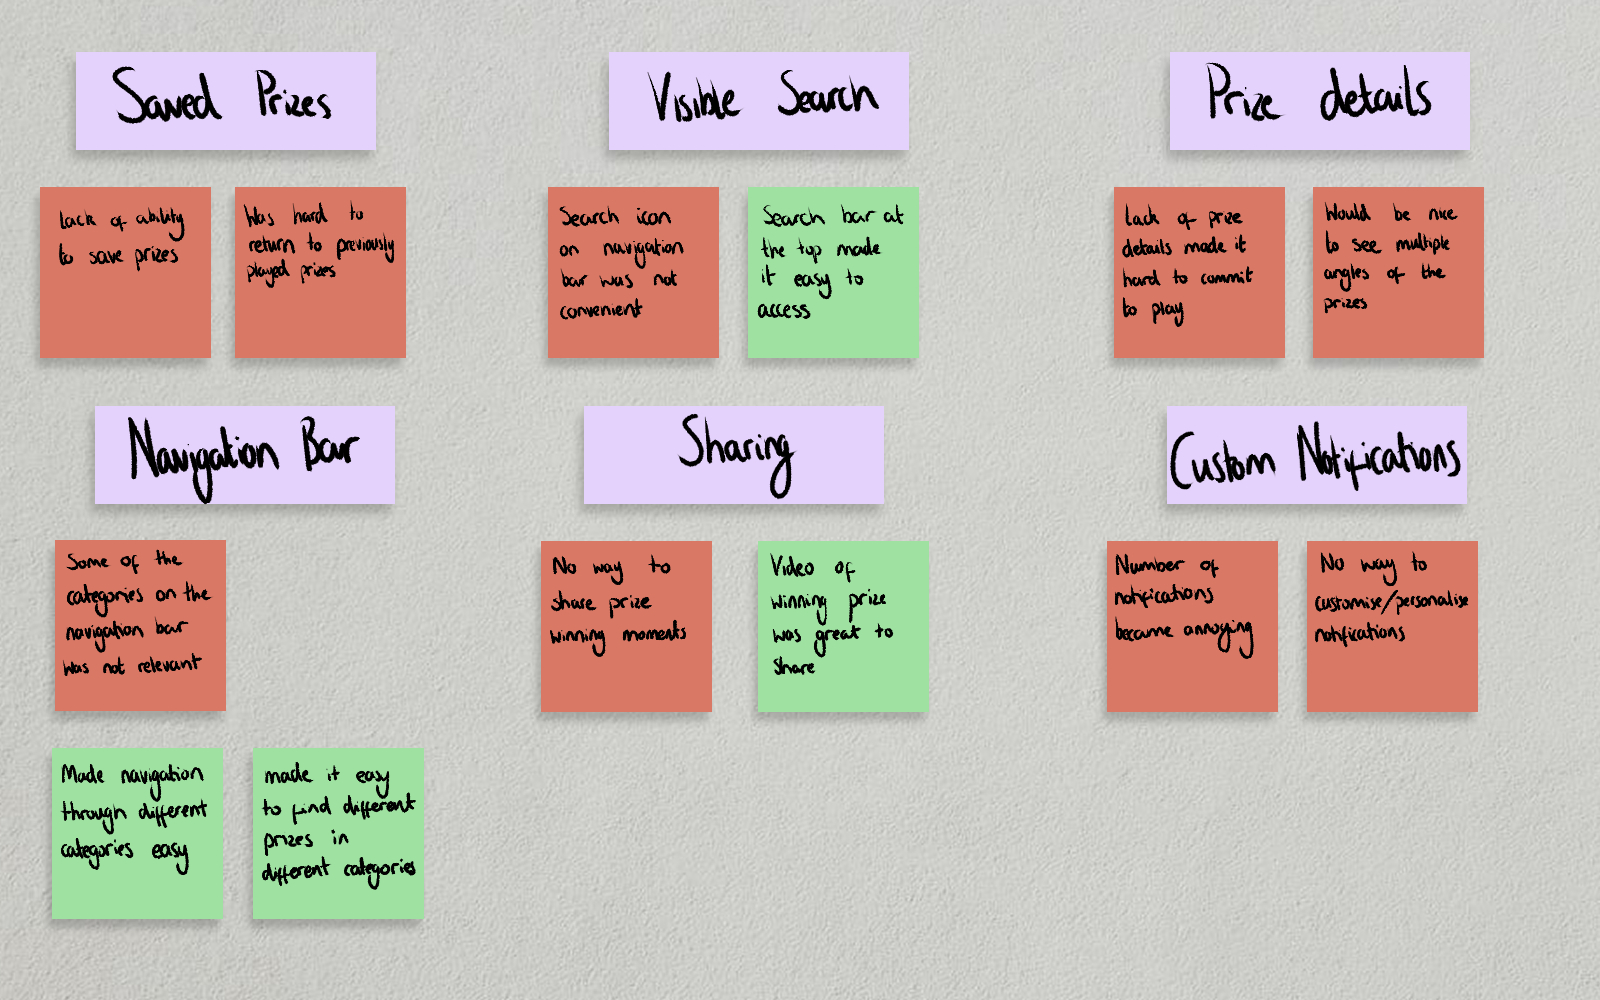 Saved Prizes
Lack of ability
to save prizes
Was hard to
return to previously
played prizes
Visible Search
Search icon
on navigation
bar was not
convenient
Search bar at
the top made
it easy to
access
Prize details
Lack of prize
details made it
hard to commit
to play
Would be nice
to see multiple
angles of the
prizes
Navigation Bar
Some of the
categories on the
navigation bar
was not relevant
Made navigation
through different
categories easy
made it easy
to find different
prizes in
different categories
Sharing
No way to
share prize
winning moments
Video of
winning prize
was great to
share
Custom Notifications
Number of
notifications
became annoying
No way to
customise/personalise
notifications